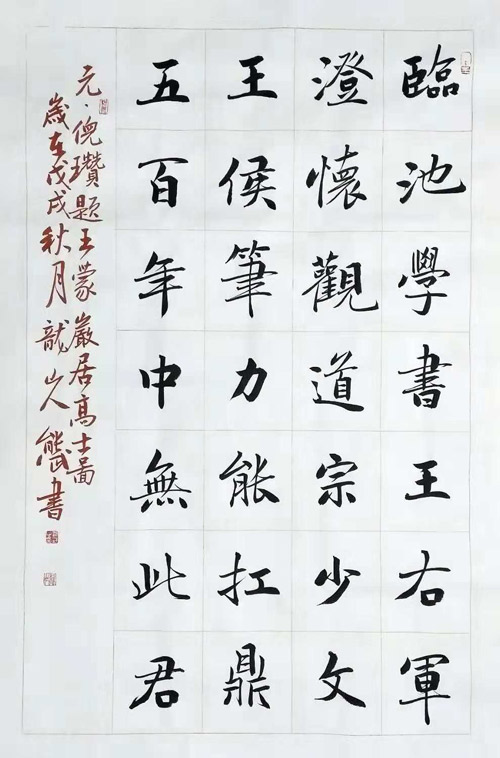 臨池學書王右軍
澄懷觀道宗少文
王侯筆力能扛鼎
五百年中無此君
元、倪瓚題王蒙巖居高士圖
歲在戊戌秋月龍山人熊書